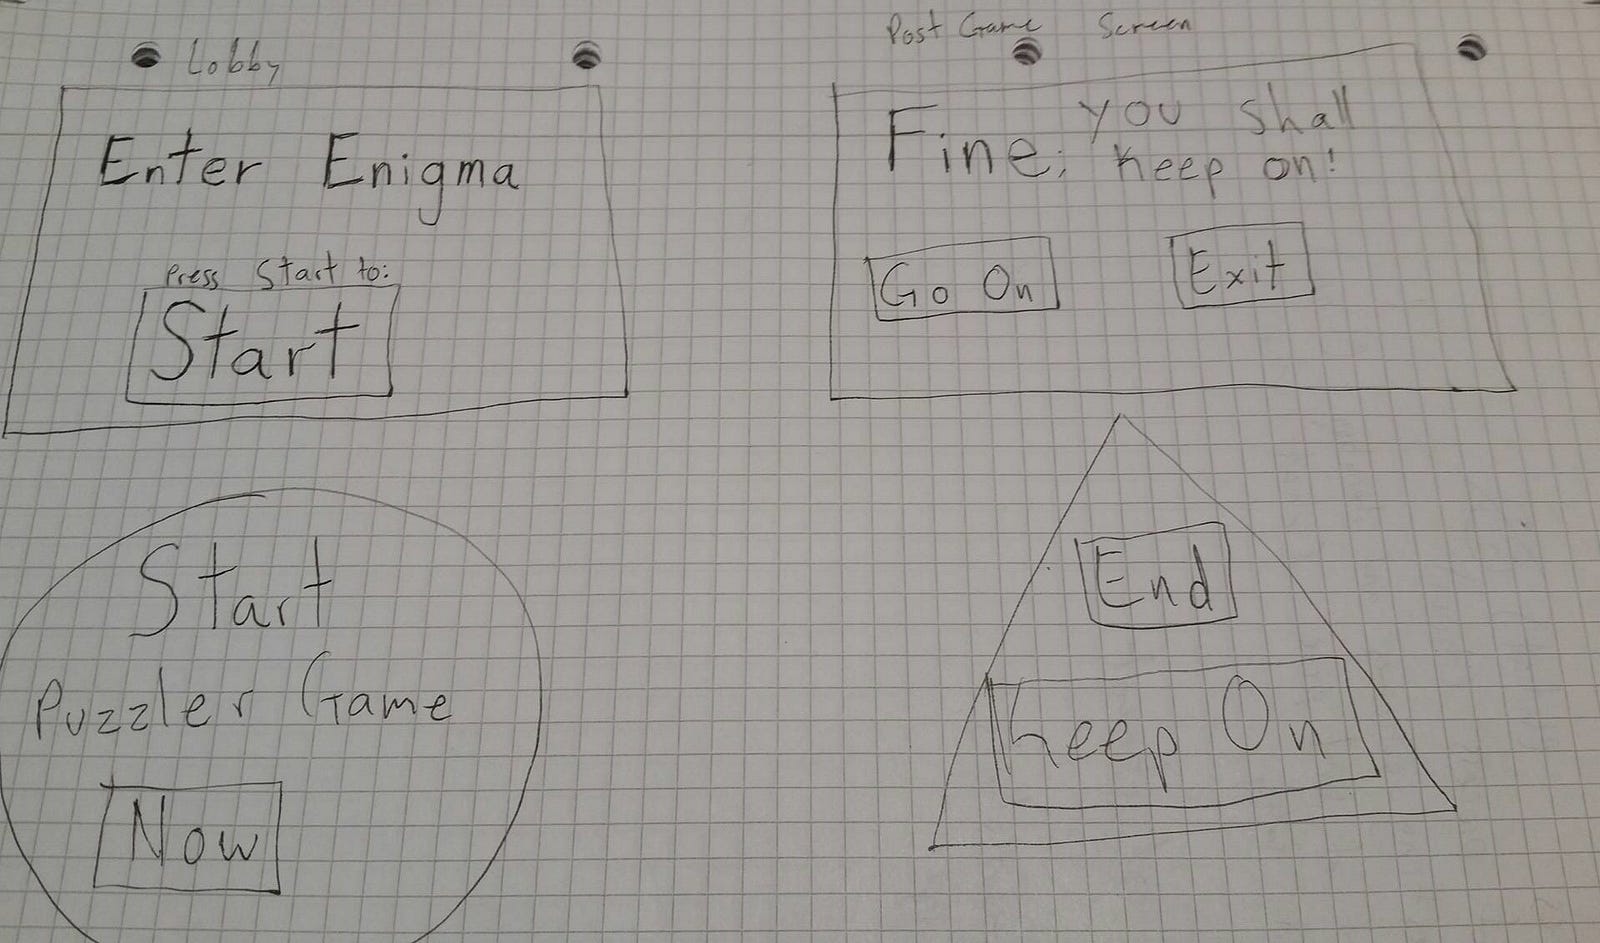 Lobby
Enter Enigma
Press Start to:
Start
Post Game Screen
Fine, you shall
keep on!
Go On
Exit
Start
Puzzler Game
Now
End
Keep On